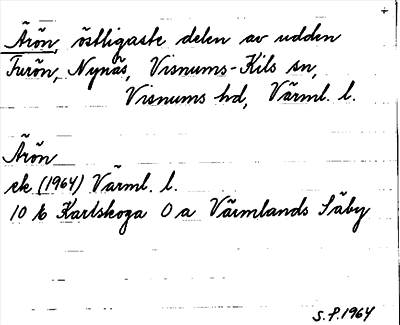 Ärön, östligaste delen av udden
Furön, Nynäs, Visnums-Kils sn,
Visnums hd, Värml. l.
Ärön
ek (1964) Värml. l.
10 E Karlskoga O a Värmlands Säby
S.P. 1964